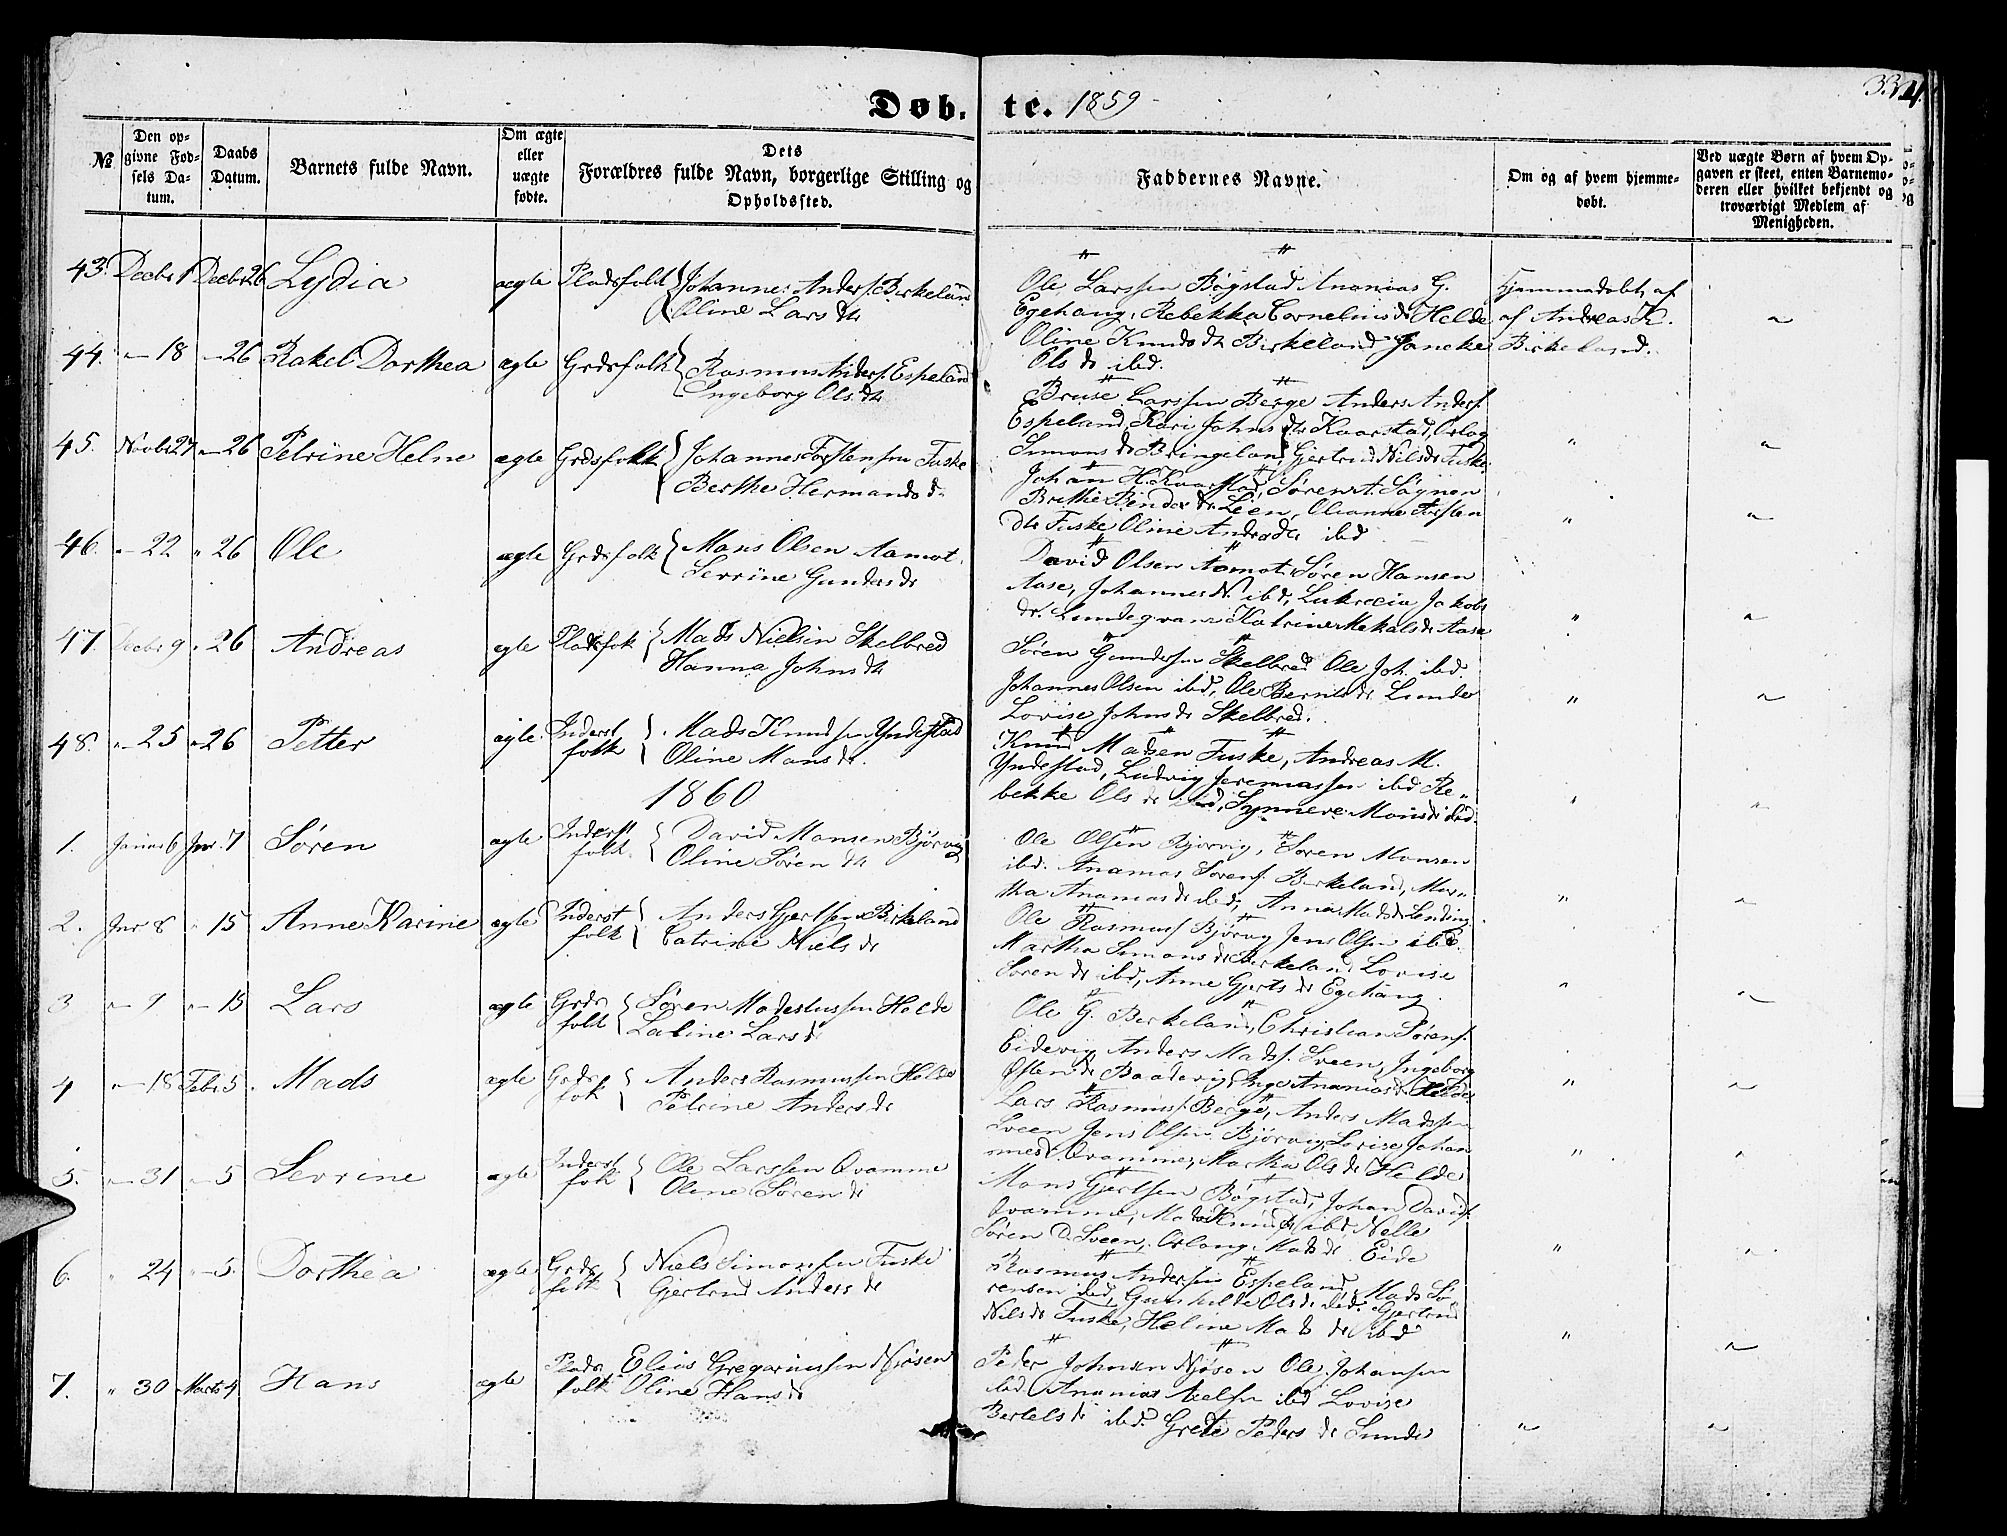 Døb. te. 1859
33
№
Den opgivne Fødsels Datum.
Daabs Datum.
Barnets fulde Navn.
Om ægte eller uægte fødte.
Dets Forældres fulde Navn, borgerlige Stilling og Opholdssted.
Faddernes Navne.
Om og af hvem hjemmedøbt.
Ved uægte Børn af hvem Opgaven er skeet, enten Barnemoderen eller hvilket bekjendt og troværdigt Medlem af Menigheden.
43. Decbr 1 Decbr 26 Lydia ægte Pladsfolk Johannes Anders. Birkeland
Oline Lars dtr
Ole Larssen Bøgstad Ananias G.
Egehaug, Rebekka Cornelius dr Helde
Oline Knuds dtr Birkeland Janeke
Ols dr ibd.
Hjemmedøbt af
af Andreas K.
Birkeland.
44. " 18 " 26 Rakel Dorthea ægte Grdsfolk Rasmus Anders. Espeland
Ingeborg Ols dtr
Bruse Larssen Berge Anders Anders.
Espeland, Kari Johns dtr Kaarstad, Orlog
Simons dr Bringeland, Gjertrud Nils dr Fuske
45. Novbr 27 " 26 Petrine Helne ægte Grdsfolk Johannes Torstensen Fuske
Berthe Hermands dr
Johan H. Kaarstad, Søren A. Søgnen
Brithe Bendix dr Lien, Olianne Torsten
dtr Fuske Oline Andrs dr ibd
46. " 22 " 26 Ole ægte Grdsfolk Mons Olsen Aamot.
Serrine Gunders dr
David Olsen Aamot Søren Hansen
Aase, Johannes N. ibd, Lukrecia Jakobs
dr. Lundegvan Katrine Mikals dr Aase
47. Decbr 9 " 26 Andreas ægte Pladsfolk Mads Nielsen Skelbred
Hanna Johns dtr
Søren Gundersen Skelbred Ole Joh. ibd.
Johannes Olsen ibd, Ole Bernts dr Lunde
Lovise Johns dr Skelbred.
48. " 25 " 26 Petter ægte Inderst folk Mads Knudsen Yndestad
Oline Mons dr.
Knud Madsen Fuske, Andreas M.
Yndestad, Ludvig Jeremiassen ibd Rebekke Ols dr ibd, Synneve Mons dr ibd.
1860
1. Januar 6 Jnr. 7 Søren ægte Inderst folk David Monsen Bjørvig
Oline Søren dtr
Ole Olsen Bjørvig, Søren Monsen
ibd. Ananias Sørens. Birkeland, Martha Ananias dr ibd, Anna Mads dr
2. Jnr 8 " 15 Anne Karine ægte Inderst folk Anders Gjertsen Birkeland
Catrine Niels dr
Ole Rasmus. Bjørvig Jens Olsen ibd.
Martha Simons dr Birkeland Lovise
Søren dr ibd, Anne Gjerts dr Egehaug.
3 " 9 " 15 Lars ægte Grds folk Søren Modestussen Helde
Laline Lars dr
Ole G. Birkeland, Christian Sørens.
Eidevig Anders Madss. Sveen, Ingeborg
Østen dr Baadevig, Inge Ananias dr Helde
4 " 18 Febr. 5. Mads ægte Grds folk Anders Rasmussen Helde
Petrine Anders dr
Lars Rasmus. Berge, Anders Madssen
Sveen Jens Olsen Bjørvig, Lovise Johannes d. Qvamme, Martha Ols dr Helde
5. " 31 " 5 Serrine ægte Inderst folk Ole Larssen Qvamme
Oline Søren dr
Mons Gjertsen Bøgstad, Johan Davids.
Qvamme, Mads Knuds. ibd, Nelle
Søren D. Sveen, Orlong Mads dr Eide
6. " 24 " 5. Dorthea ægte Grds folk Niels Simonsen Fuske
Gjertrud Anders dr
Rasmus Andersen Espeland, Mads Sørensen ibd, Gunhilde Ols dr ibd. Gjertrud
Nils dr Fuske, Heline Mads dr ibd
7. " 30 Marts 4 Hans ægte Plads folk Elias Gregoriussen Njøsen
Oline Hans dr
Peder Johnsen Njøsen Ole Johansen
ibd. Ananias Axelsen ibd Lovise
Bertels dr ibd. Grete Peders dr Lunde